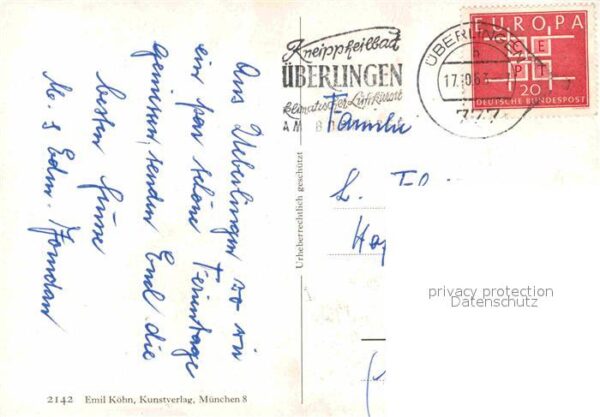 Aus Überlingen wo wir
ein paar schöne Ferientage
geniessen, senden Euch die
besten Grüsse
M. & Edm.
Kneippheilbad
ÜBERLINGEN
klimatischer Luftkurort
AM BODENSEE
ÜBERLINGEN
17.10.63
EUROPA
CEPT
20
DEUTSCHE BUNDESPOST
Familie
L.
Urheberrechtlich geschützt
privacy protection
Datenschutz
2142 Emil Köhn, Kunstverlag, München 8